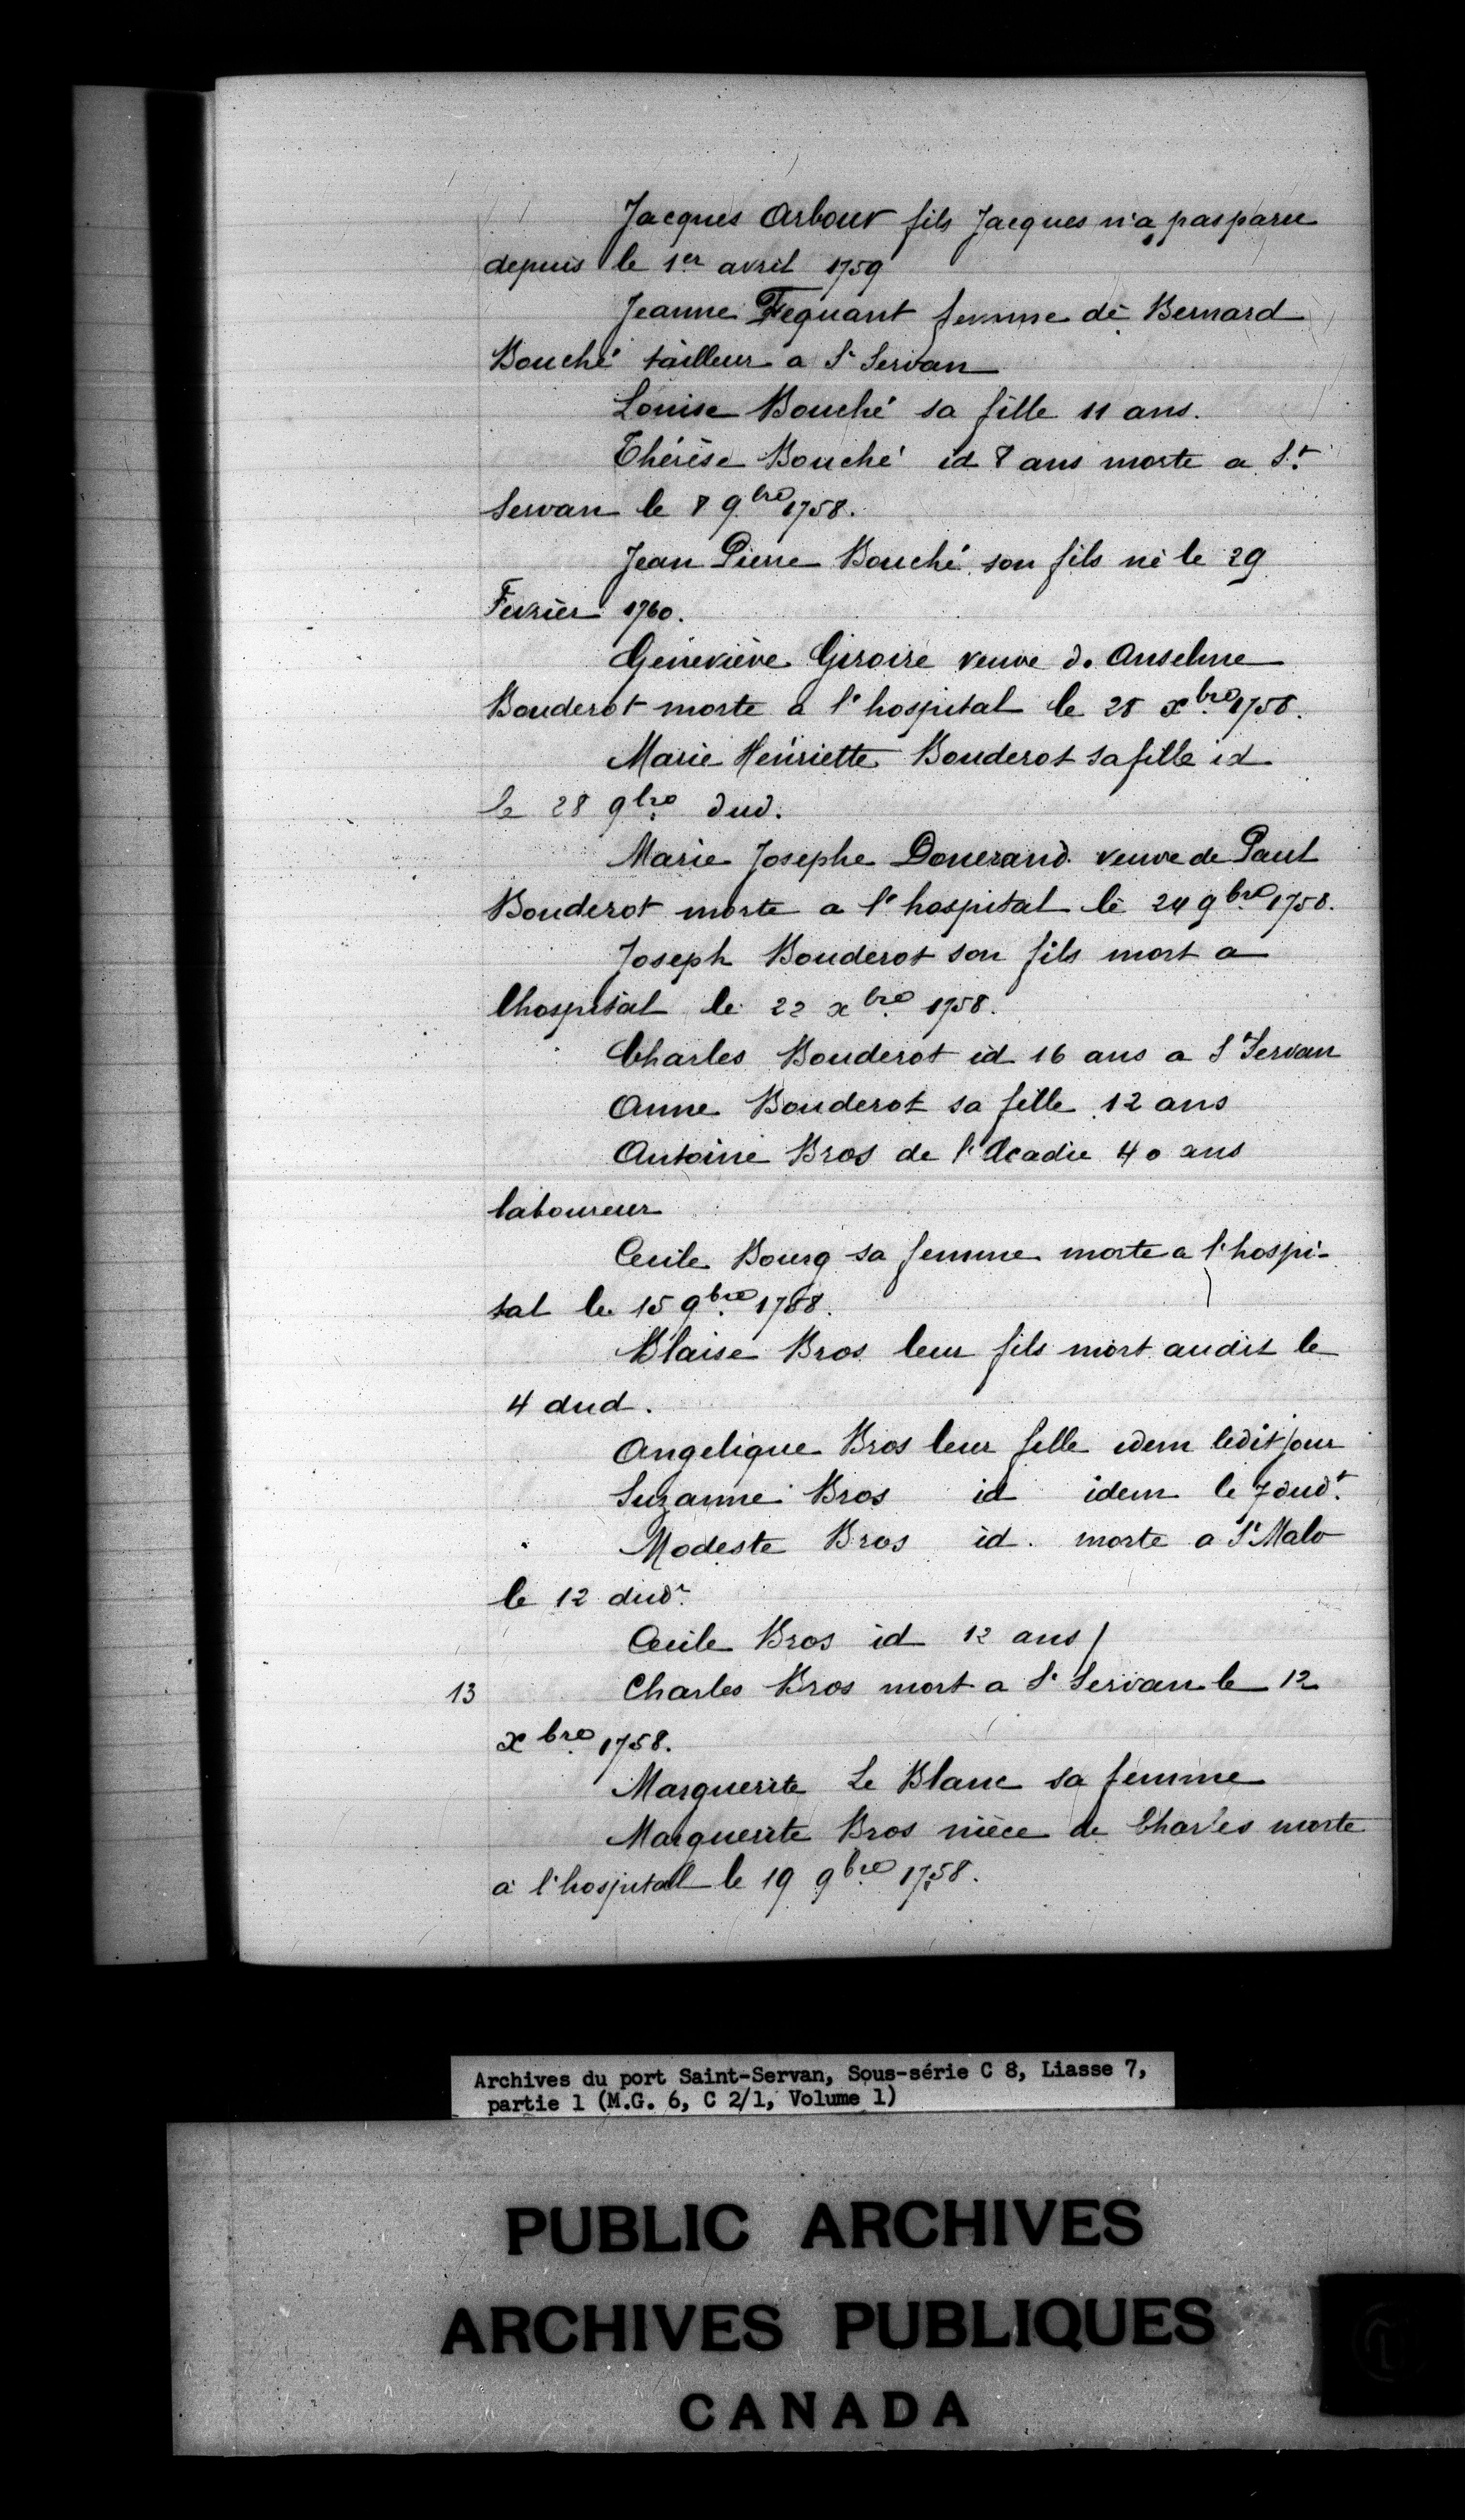 Jacques Arbour fils Jacques n'a pas paru
depuis le 1er avril 1759
Jeanne Fequant femme de Bernard
Bouché tailleur a St Servan
Louise Bouché sa fille 11 ans.
Thérèse Bouché id 8 ans morte a St
Servan le 8 9bre 1758.
Jean Pierre Bouché son fils né le 29
Fevrier 1760.
Geneviève Giroire veuve d. Anselme
Bouderot morte a l'hospital le 28 xbre 1758.
Marie Henriette Bouderot sa fille id
le 28 9bre dud.
Marie Josephe Douerand veuve de Paul
Bouderot morte a l'hospital le 24 9bre 1758.
Joseph Bouderot son fils mort a
lhospital le 22 xbre 1758.
Charles Bouderot id 16 ans a St Servan
Anne Bouderot sa fille 12 ans
Antoine Bros de l'Acadie 40 ans
laboureur
Cecile Bourg sa femme morte a l'hospi-
tal le 15 9bre 1758.
Blaise Bros leur fils mort audit le
4 dud.
Angelique Bros leur fille idem ledit jour
Suzanne Bros id idem le 7 dudt.
Modeste Bros id. morte a St Malo
le 12 dudt.
Cecile Bros id 12 ans
13 Charles Bros mort a St Servan le 12
xbre 1758.
Marguerite Le Blanc sa femme
Marguerite Bros nièce de Charles morte
à l'hospital le 19 9bre 1758.
Archives du port Saint-Servan, Sous-série C 8, Liasse 7,
partie 1 (M.G. 6, C 2/1, Volume 1)
PUBLIC ARCHIVES
ARCHIVES PUBLIQUES
CANADA